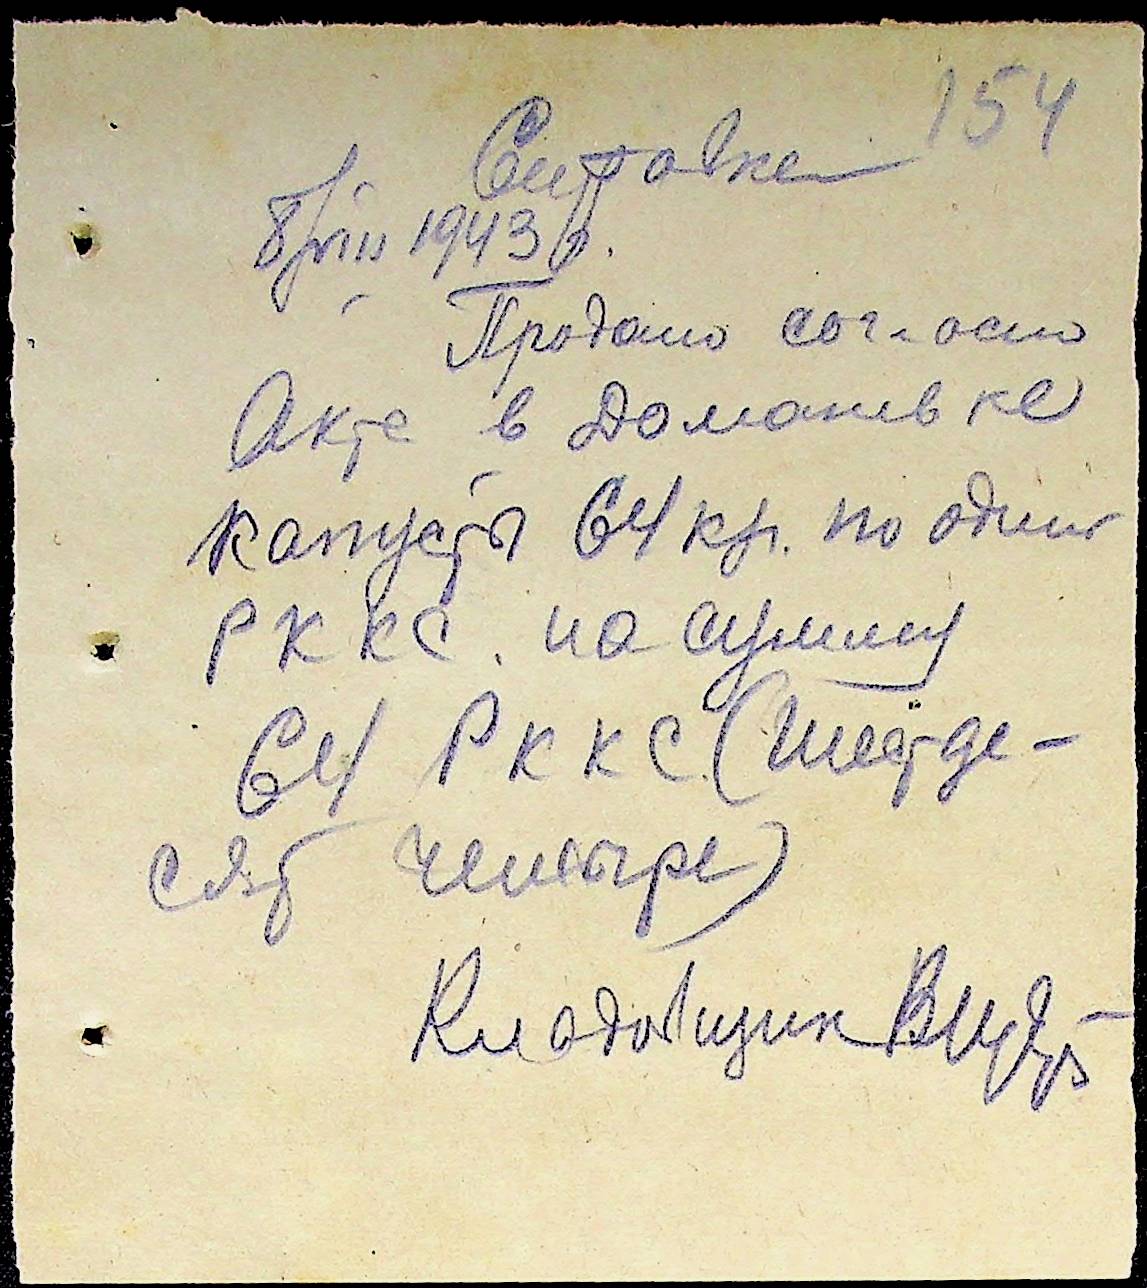 154
Справка
8/VIII 1943 г.
Продано согласно
Акта в Доманевке
капусты 64 кгр. по одной
РККС. на сумму
64 РККС (Шестде-
сят четыре)
Кладовщик